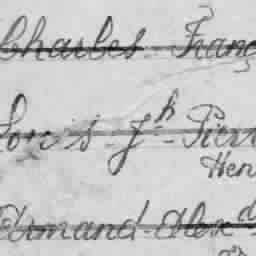 Charles Franç
Louis Jh Pierr
Hen
Armand Alexd